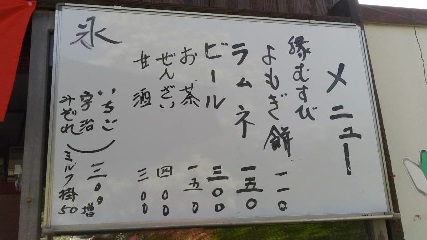 メニュー
縁むすび
よもぎ餅 一一〇
ラムネ 一五〇
ビール 三〇〇
お茶 一五〇
ぜんざい 四〇〇
甘酒 三〇〇
氷
いちご
宇治
みぞれ
三〇〇
ミルク掛50増